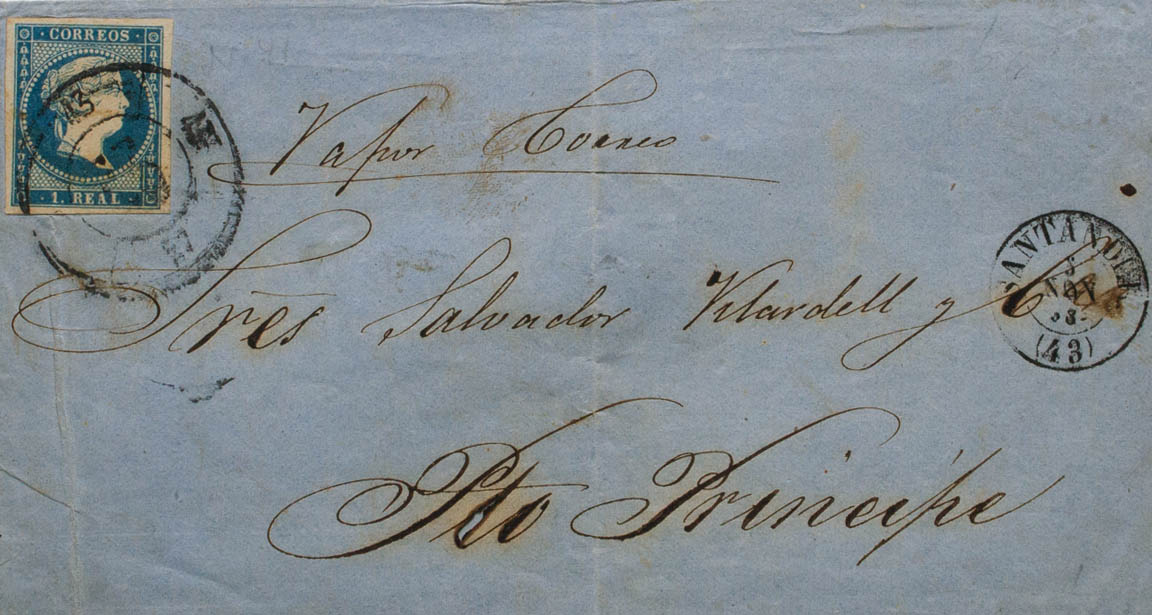 CORREOS
1. REAL
13
Vapor Correo
Sres Salvador Vilardell y C
SANTANDER
5
NOV
58
(43)
Pto Principe